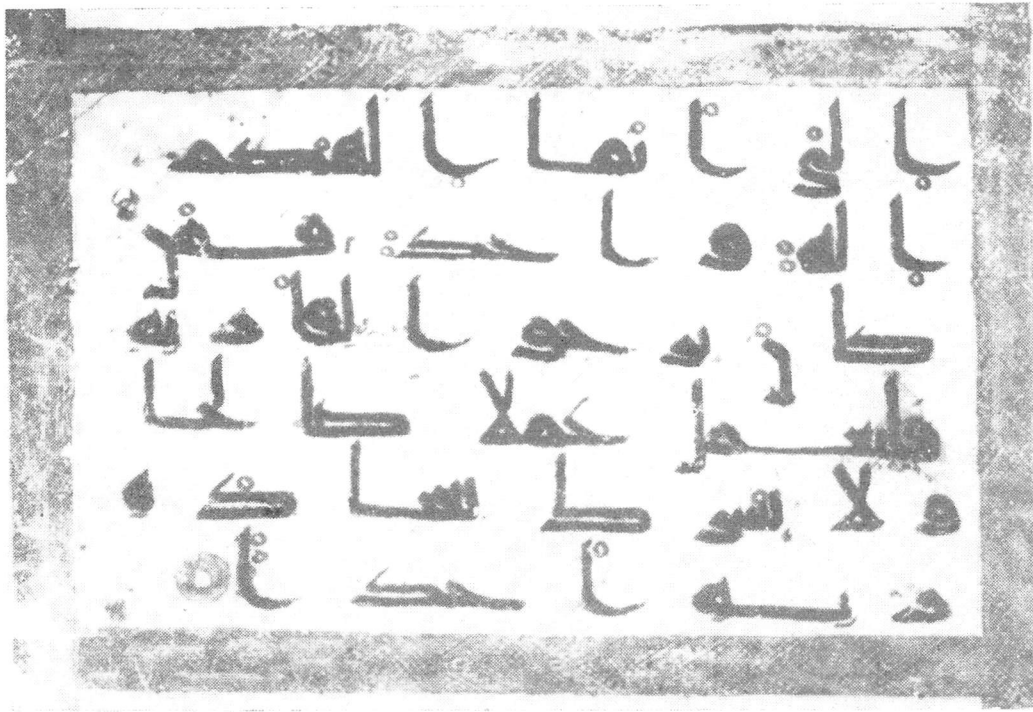 الى انما الهكم
اله واحد فمن
كان يرجوا لقا ربه
فليعمل عملا صالحا
ولا يشرك بعبادة
ربه احدا